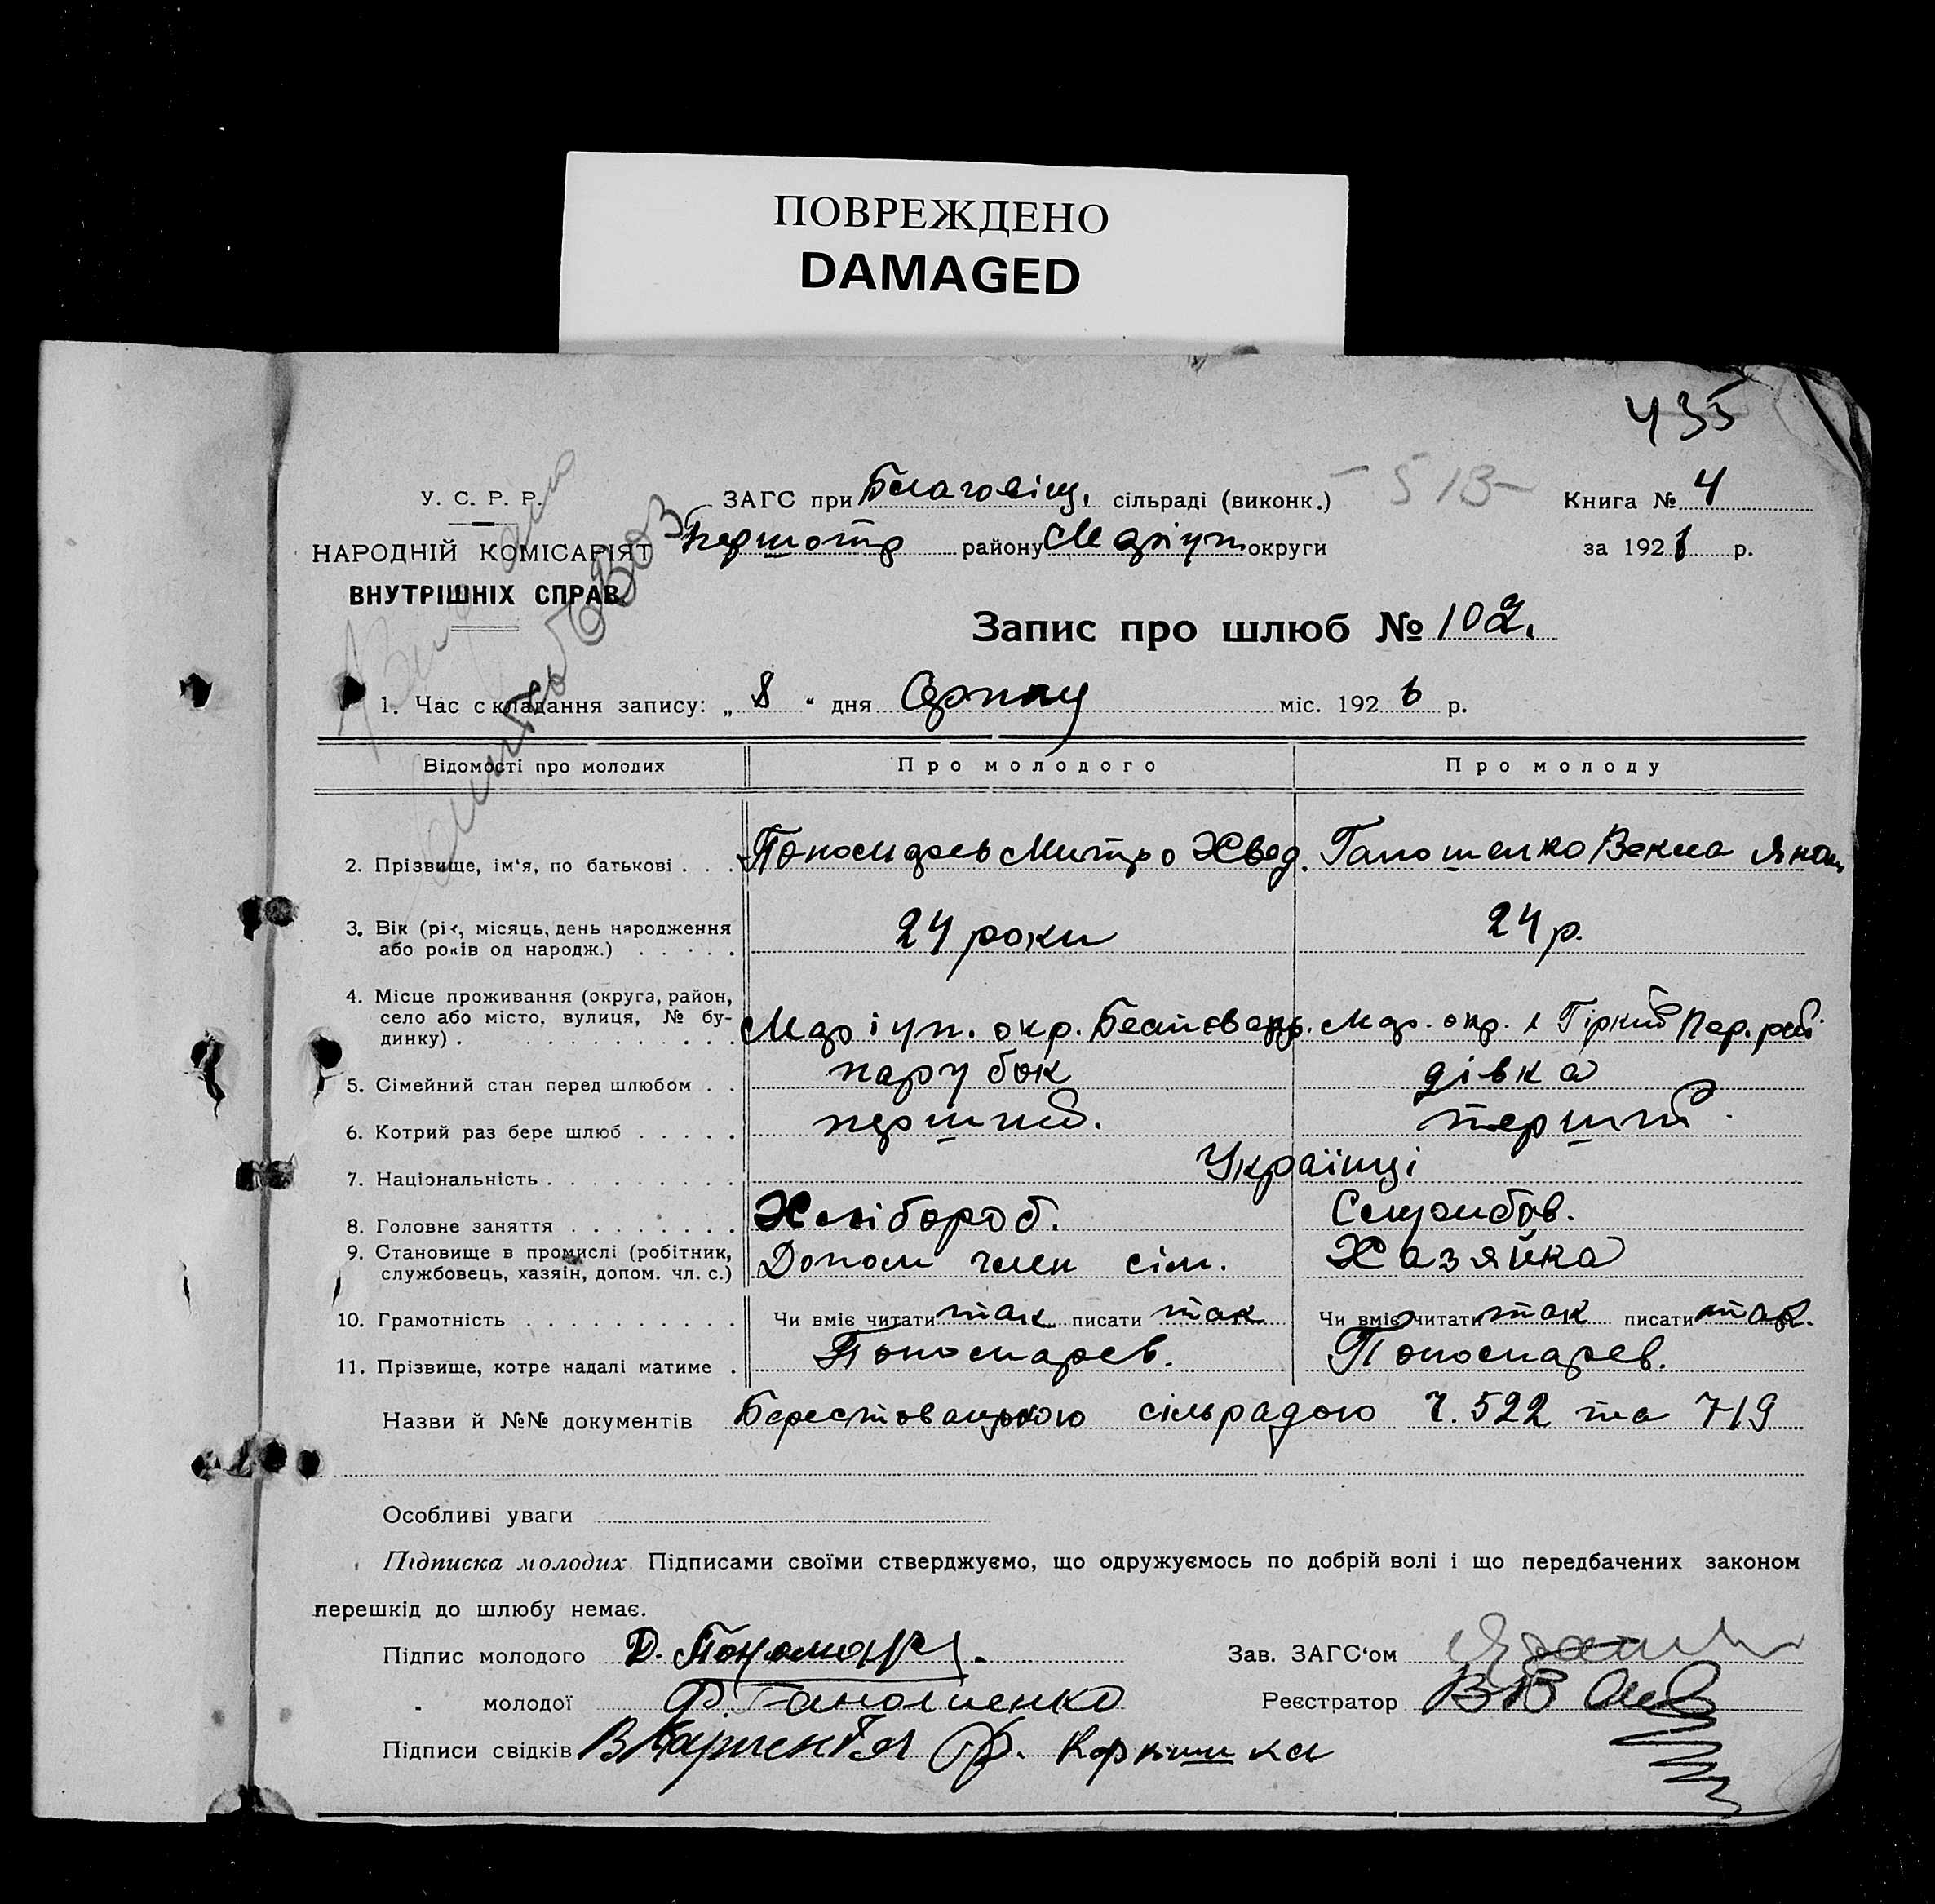 ПОВРЕЖДЕНО
DAMAGED
435
У. С. Р. Р.
НАРОДНІЙ КОМІСАРІЯТ
ВНУТРІШНІХ СПРАВ.
ЗАГС при Благовіщ. сільраді (виконк.) 513 Книга № 4
Першотр району Маріуп округи за 1926 р.
Запис про шлюб № 102.
1. Час складання запису: „ 8 “ дня Серпня міс. 1926 р.
Відомості про молодих Про молодого Про молоду
2. Прізвище, ім‘я, по батькові . . . Пономарев Митро Хвед. Ганошенко Векла
3. Вік (рік, місяць, день народження 24 роки 24 р.
або років од народж.) . . . . .
4. Місце проживання (округа, район,
село або місто, вулиця, № бу-
динку) . . . . . . . . . . . Маріуп. окр. Мар. окр.
5. Сімейний стан перед шлюбом . . парубок дівка
6. Котрий раз бере шлюб . . . . . перший. перший
7. Національність . . . . . . . . . Українці
8. Головне заняття . . . . . . . . Хлібороб.
9. Становище в промислі (робітник,
службовець, хазяїн, допом. чл. с.) Допом член сім. Хазяйка
10. Грамотність . . . . . . . . . . Чи вміє читати так писати так Чи вміє читати так писати так.
11. Прізвище, котре надалі матиме . Пономарев. Пономарев.
Назви й №№ документів Берестовецькою сільрадою Ч. 522 та 719
Особливі уваги
Підписка молодих. Підписами своїми стверджуємо, що одружуємось по добрій волі і що передбачених законом
перешкід до шлюбу немає.
Підпис молодого Д. Пономарев. Зав. ЗАГС‘ом
„ молодої Ф. Ганошенко Реєстратор
Підписи свідків